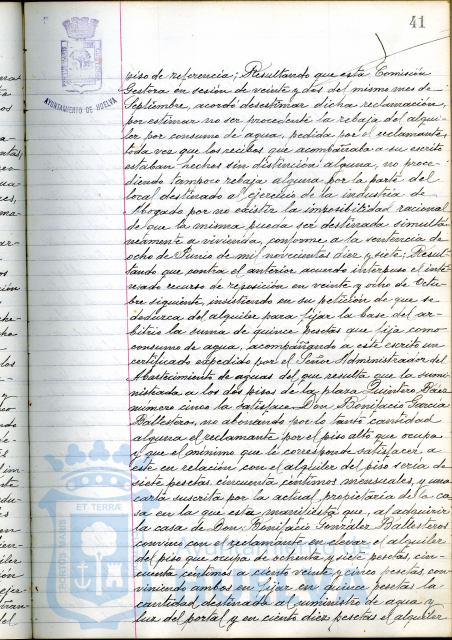 41
AYUNTAMIENTO DE HUELVA
viso de referencia; Resultando que esta Comisión
Gestora en sesión de veinte y dos del mismo mes de
Septiembre, acordó desestimar dicha reclamación,
por estimar no ser procedente la rebaja del alqui-
ler por consumo de agua, pedida por el reclamante,
toda vez que los recibos que acompañaba a su escrito
estaban hechos sin distinción alguna, no proce-
diendo tampoco rebaja alguna por la parte del
local destinado a ejercicio de la industria de
Abogado por no existir la imposibilidad racional
de que la misma pueda ser destinada simultá-
neamente a vivienda, conforme a la sentencia de
ocho de Junio de mil novecientos diez y siete; Resul-
tando que contra el anterior acuerdo interpuso el inte-
resado recurso de reposición en veinte y ocho de Octu-
bre siguiente, insistiendo en su petición de que se
deduzca del alquiler para fijar la base del ar-
bitrio la suma de quince pesetas que fija como
consumo de agua, acompañando a este escrito un
certificado expedido por el Señor Administrador del
Abastecimiento de aguas del que resulta que la sumi-
nistrada a los dos pisos de la plaza Quintero Báez
número cinco la satisface Don Bonifacio García
Ballesteros, no abonando por lo tanto cantidad
alguna el reclamante por el piso alto que ocupa
y que el mínimo que le corresponde satisfacer a
este en relación con el alquiler del piso sería de
siete pesetas cincuenta céntimos mensuales, y una
carta suscrita por la actual propietaria de la ca-
sa en la que esta manifiesta que, al adquirir
la casa de Don Bonifacio González Ballesteros
convino con el reclamante en elevar el alquiler
del piso que ocupa de ochenta y siete pesetas, cin-
cuenta céntimos a ciento veinte y cinco pesetas con-
viniendo ambos en fijar en quince pesetas la
cantidad destinada al suministro de agua y
luz del portal y en ciento diez pesetas el alquiler